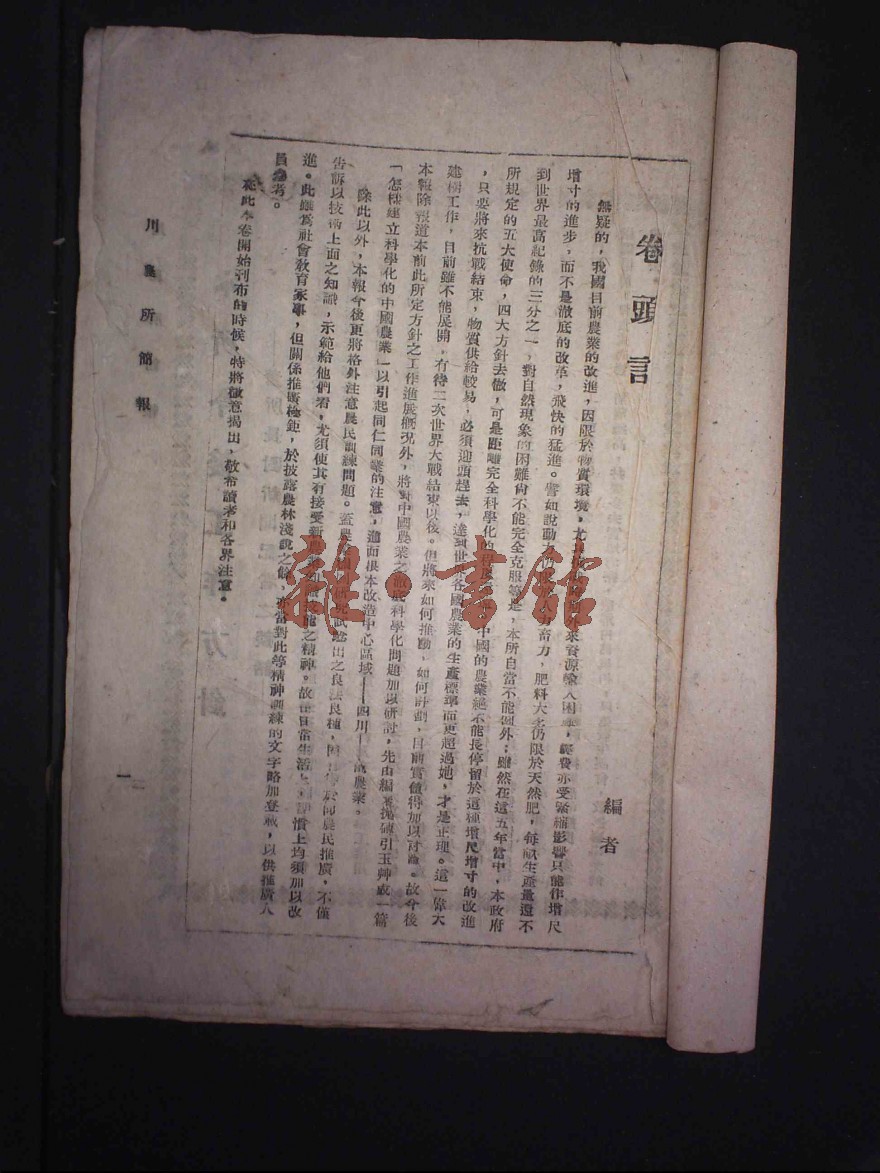 卷頭言
編者
無疑的，我國目前農業的改進，因限於物質環境，尤其外來資源輸入困難，經費亦受緊縮影響只能作增尺
增寸的進步，而不是澈底的改革，飛快的猛進。譬如說動力仍畜力，肥料大多仍限於天然肥，每畝生產量還不
到世界最高紀錄的三分之一，對自然現象的困難尙不能完全克服等是，本所自當不能例外；雖然在這五年當中，本政府
所規定的五大使命，四大方針去做，可是距離完全科學化的中國的農業絕不能長停留於這種增尺增寸的改進
，只要將來抗戰結束，物質供給較易，必須迎頭趕去，達到世界各國農業的生產標準而更超過她，才是正理。這一偉大
建樹工作，目前雖不能展開，有待二次世界大戰結束以後。但將來如何推動，如何計劃，目前實值得加以討論。故今後
本報除報道本前此所定方針之工作進展概況外，將對中國農業之澈底科學化問題加以研討，先由編者拋磚引玉艸成一篇
「怎樣建立科學化的中國農業」以引起同仁同業的注意，進而根本改造中心區域——四川——底農業。
除此以外，本報今後更將格外注意農民訓練問題。蓋農試出之良法良種，向農民推廣，不僅
告訴以技術上面之知識，示範給他們看，尤須使其有接受新農業之精神。故在日常生活上，習慣上均須加以改
進。此雖爲社會敎育家事，但關係推廣極鉅，於披露農林淺說之餘，亦當對此等精神訓練的文字略加登載，以供推廣人
員參考。
在此本卷開始刊布的時候，特將微意揭出，敬希讀者和各界注意。
川農所簡報
一
雜·書館